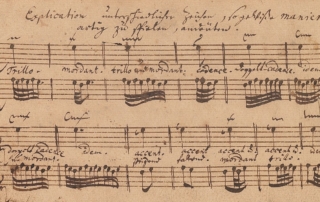 Explication unterschiedlicher Zeichen, so gewiße manier
artig zu spielen, andeuten.
Trillo. mordant. trillo und mordant. cadence. doppelt-cadence. idem
doppelt cadence idem. accent accent accent u. accent u.
u. mordant. steigend fallend. mordant trillo.